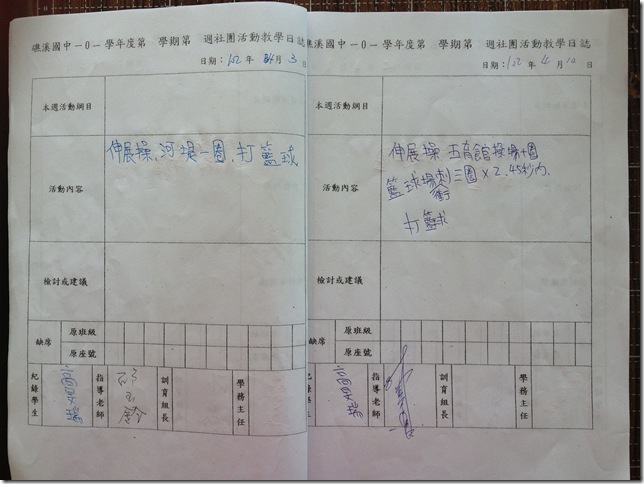 礁溪國中一0一學年度第 學期第 週社團活動教學日誌
日期：102 年 月 3 日
本週活動綱目
活動內容
伸展操、河堤一圈、打籃球
檢討或建議
缺席
原班級
原座號
紀錄學生
指導老師
訓育組長
學務主任
礁溪國中一0一學年度第 學期第 週社團活動教學日誌
日期：102 年 4 月 10 日
本週活動綱目
活動內容
伸展操 五育館操場十圈
籃球場刺衝三圈×2.45秒內、
打籃球
檢討或建議
缺席
原班級
原座號
紀錄學生
指導老師
訓育組長
學務主任